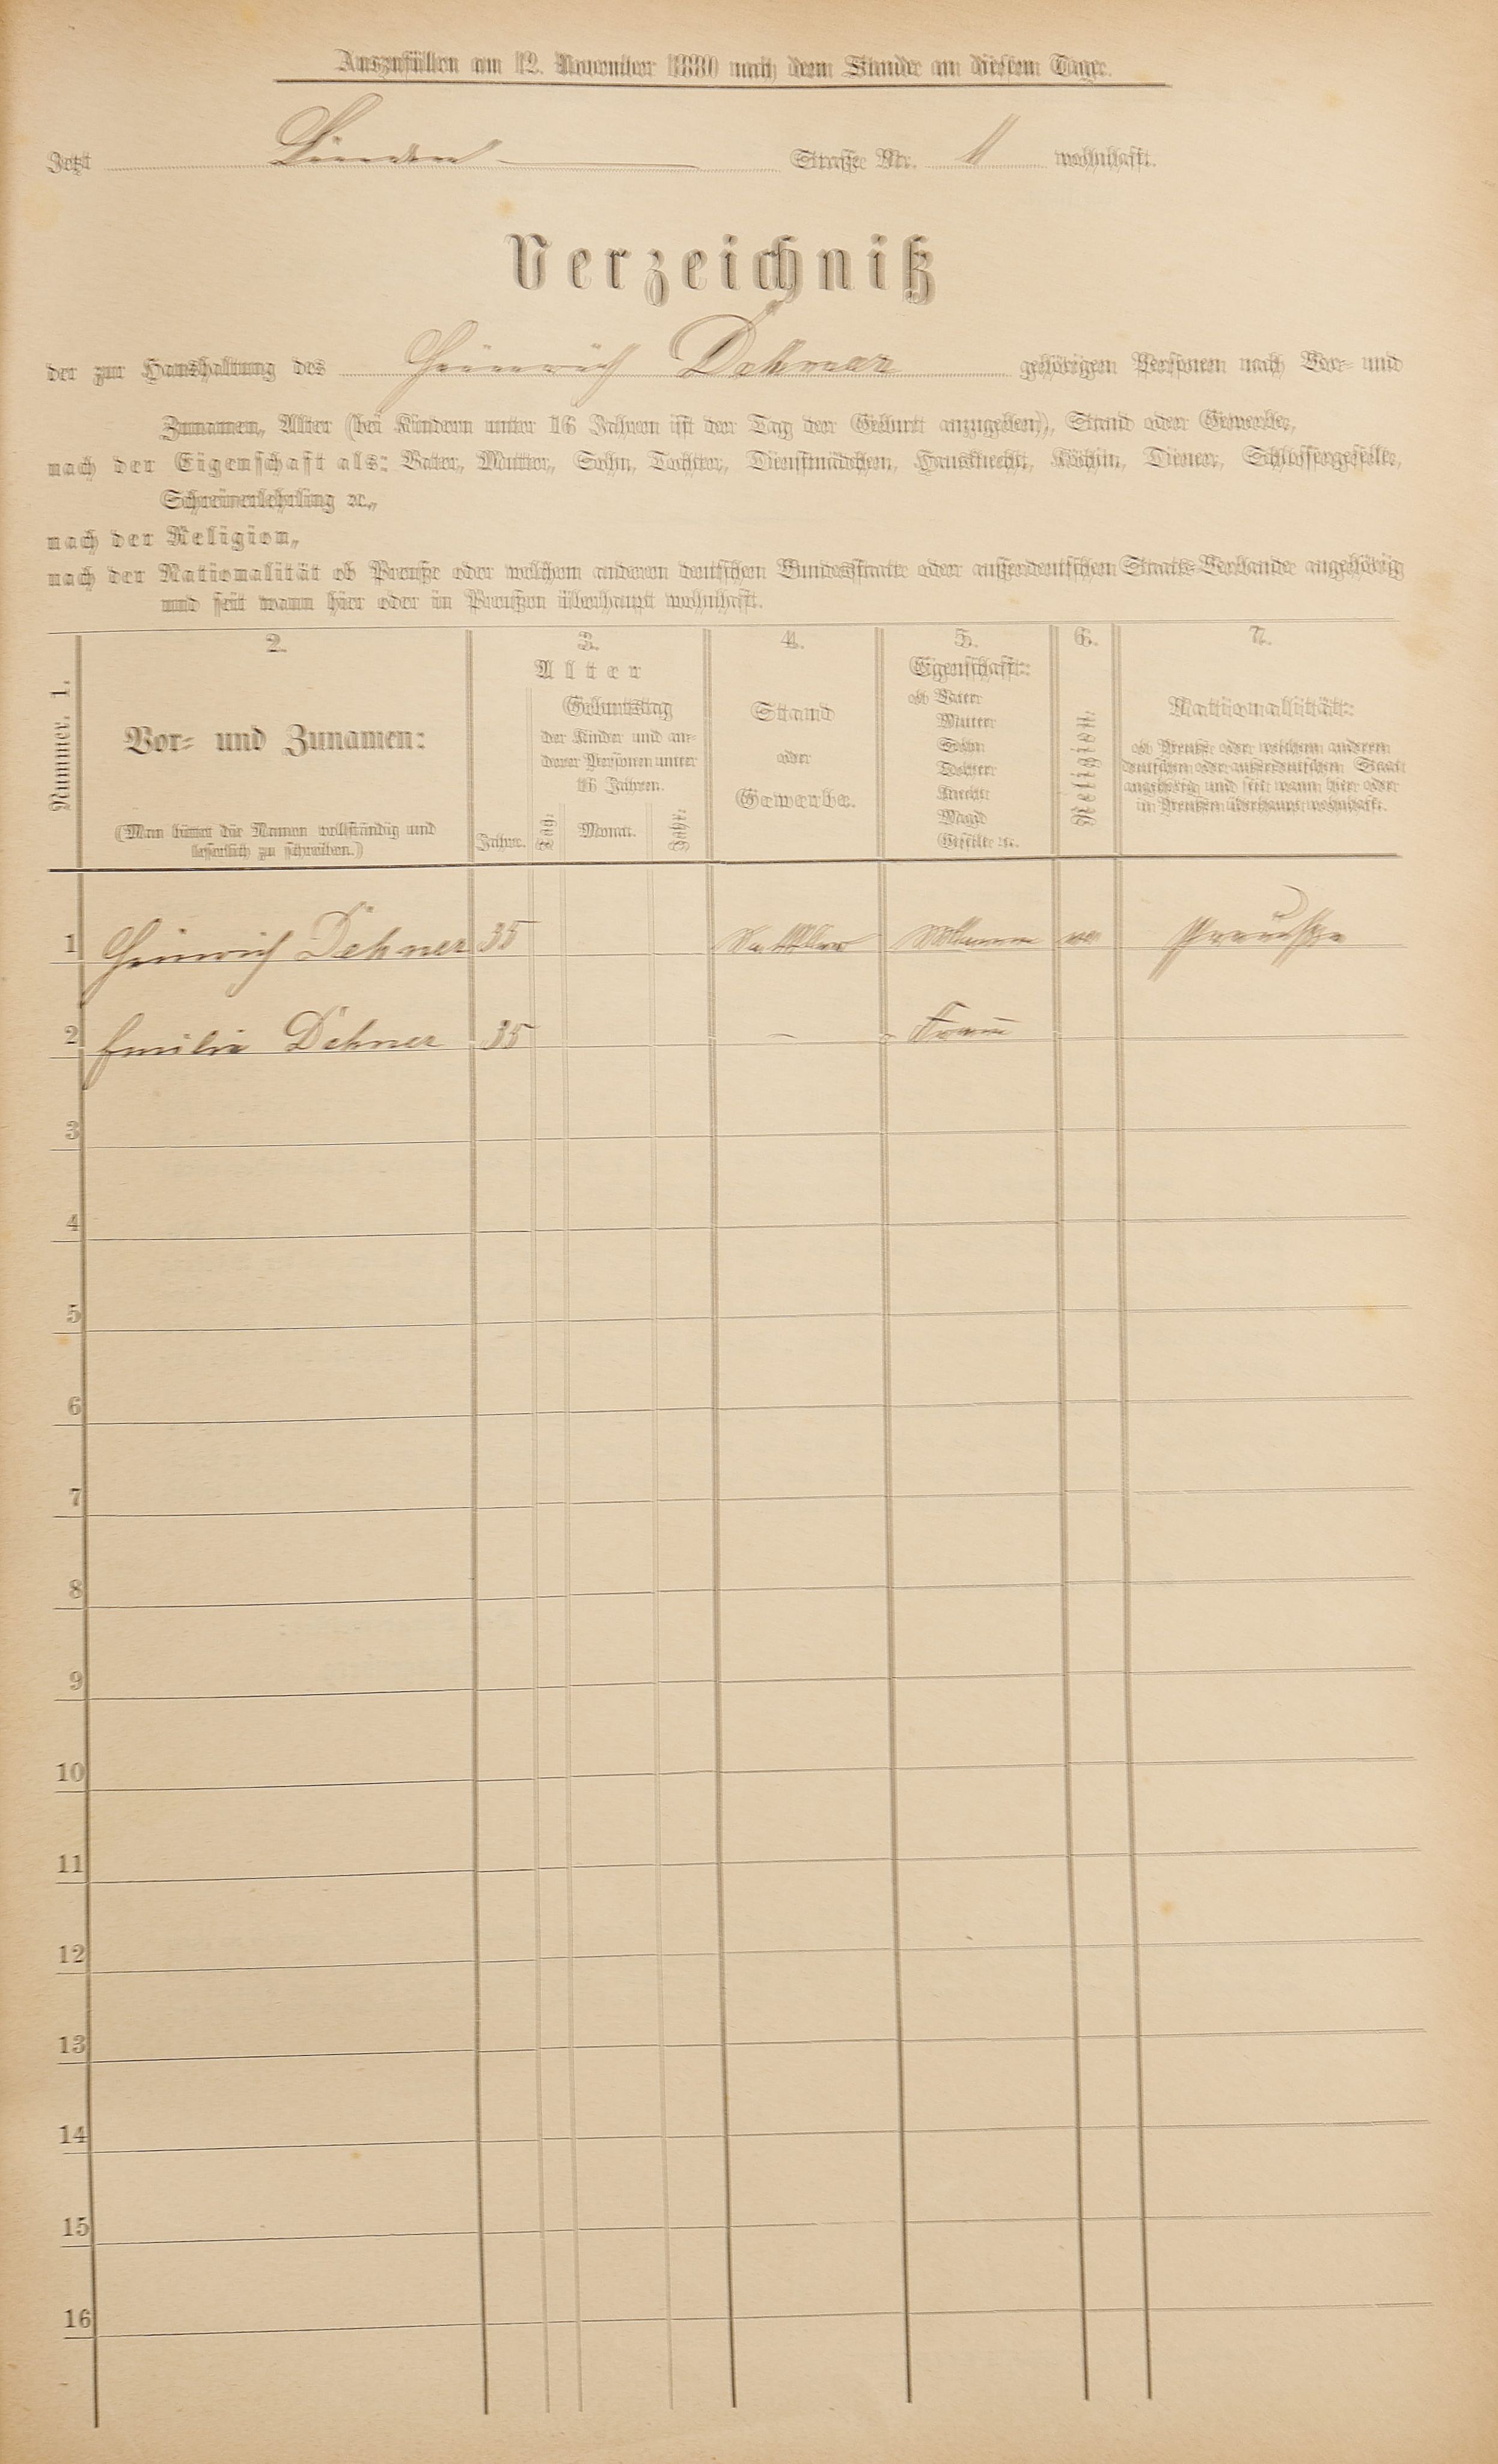 Auszufüllen am 12. November 1880 nach dem Stande an diesem Tage.
Jetzt Linden Straße Nr. 11 wohnhaft.
Verzeichniß
der zur Haushaltung des Heinrich Dehner gehörigen Personen nach Vor- und
Zunamen, Alter (bei Kindern unter 16 Jahren ist der Tag der Geburt anzugeben), Stand oder Gewerbe,
nach der Eigenschaft als: Vater, Mutter, Sohn, Tochter, Dienstmädchen, Hausknecht, Köchin, Diener, Schlossergeselle,
Schreinerlehrling ꝛc.,
nach der Religion,
nach der Nationalität ob Preuße oder welchem anderen deutschen Bundesstaate oder außerdeutschen Staats-Verbande angehörig
und seit wann hier oder in Preußen überhaupt wohnhaft.
Nummer. 1.
2.
Vor- und Zunamen:
(Man bittet die Namen vollständig und
leserlich zu schreiben.)
3.
Alter
Geburtstag
der Kinder und an-
derer Personen unter
16 Jahren.
Jahre. Tag. Monat. Jahr.
4.
Stand
oder
Gewerbe.
5.
Eigenschaft:
ob Vater
Mutter
Sohn
Tochter
Knecht
Magd
Geselle ꝛc.
6.
Religion.
7.
Nationalität:
ob Preuße oder welchem anderen
deutschen oder außerdeutschen Staat
angehörig und seit wann hier oder
in Preußen überhaupt wohnhaft.
1 Heinrich Dehner 35 Sattler Mann Preuße
2 Emilie Dehner 35 — Frau
3
4
5
6
7
8
9
10
11
12
13
14
15
16